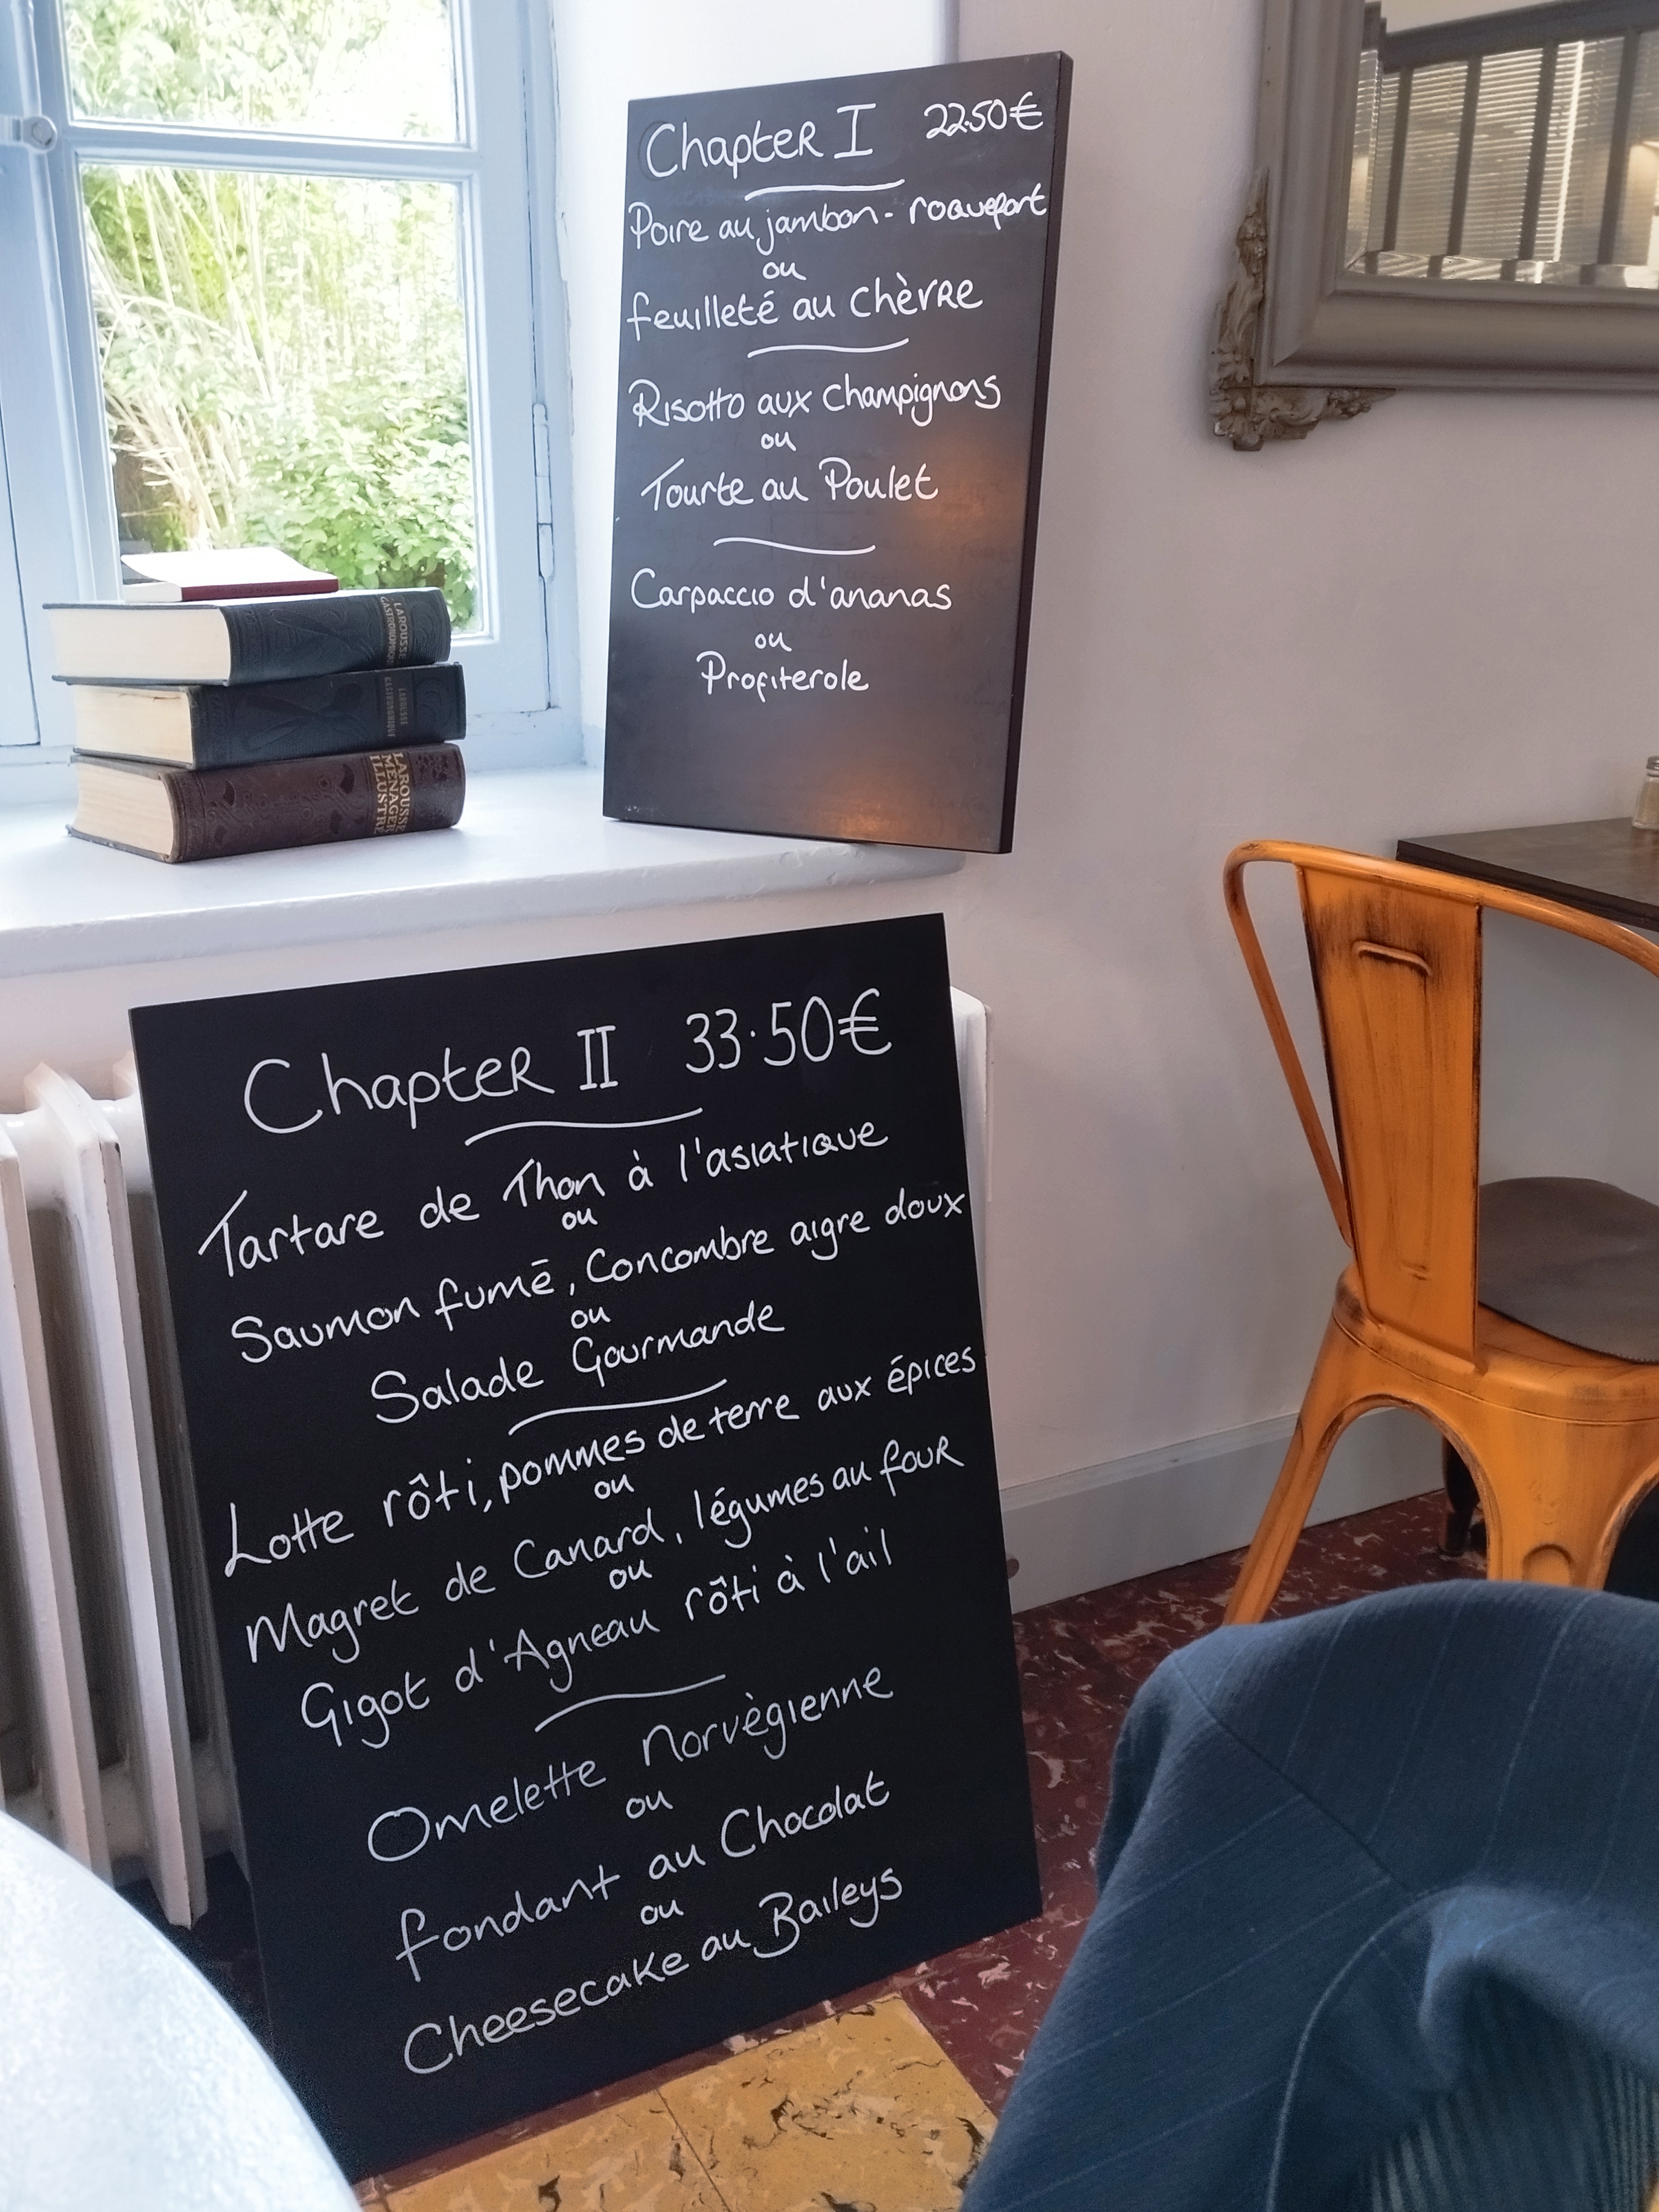 Chapter I 22.50€
Poire au jambon - roquefort
ou
feuilleté au Chèvre
Risotto aux champignons
ou
Tourte au Poulet
Carpaccio d'ananas
ou
Profiterole
LAROUSSE
GASTRONOMIQUE
LAROUSSE
GASTRONOMIQUE
LAROUSSE
MENAGER
ILLUSTRE
Chapter II 33.50€
Tartare de Thon à l'asiatique
ou
Saumon fumē, Concombre aigre doux
ou
Salade Gourmande
Lotte rôti, pommes de terre aux épices
ou
Magret de Canard, légumes au four
ou
Gigot d'Agneau rôti à l'ail
Omelette Norvègienne
ou
fondant au Chocolat
ou
Cheesecake au Baileys